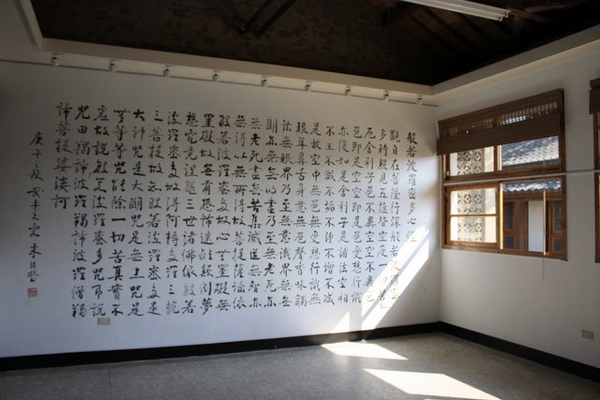 般若波羅蜜多心經
觀自在菩薩行深般若波羅蜜
多時照見五蘊皆空度一切苦
厄舍利子色不異空空不異色
色即是空空即是色受想行識
亦復如是舍利子是諸法空相
不生不滅不垢不淨不增不減
是故空中無色無受想行識無
眼耳鼻舌身意無色聲香味觸
法無眼界乃至無意識界無無
明亦無無明盡乃至無老死亦
無老死盡無苦集滅道無智亦
無得以無所得故菩提薩埵依
般若波羅蜜多故心無罣礙無
罣礙故無有恐怖遠離顛倒夢
想究竟涅槃三世諸佛依般若
波羅蜜多故得阿耨多羅三藐
三菩提故知般若波羅蜜多是
大神咒是大明咒是無上咒是
無等等咒能除一切苦真實不
虛故說般若波羅蜜多咒即說
咒曰羯諦羯諦波羅羯諦波羅僧羯
諦菩提娑婆訶
庚午